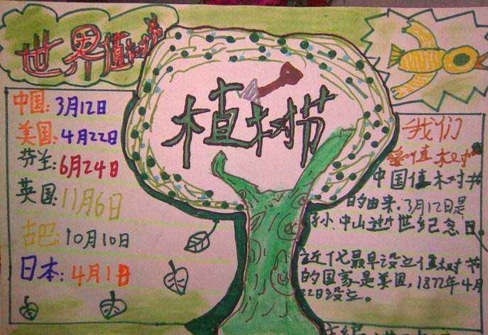 世界植树节
中国:3月12日
美国:4月22日
芬兰:6月24日
英国:11月6日
古巴:10月10日
日本:4月1日
植树节
我们
爱植树
中国植树节
的由来.3月12日是
孙中山逝世纪念日。
近代最早设立植树节
的国家是美国,1872年4月
22日设立。